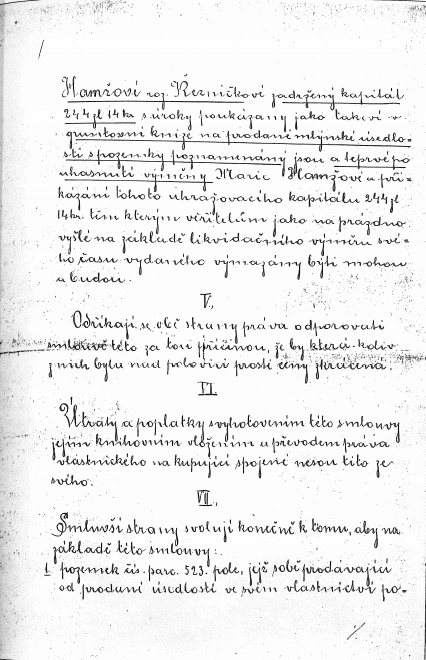 Hamžoví roz. Řezníčkové zadržený kapitál
244 zl 14 kr s úroky poukázány jako takoví v
gruntovní knize na prodané mlýnské úsedlo-
sti s pozemky poznamenány jsou a teprvé po
uhasnutí výměny Marie Hamžové a při-
kázání tohoto uhražovacího kapitálu 244 zl
14 kr. těm kterým věřitelům jako na prázdno
vyšlé na základě likvidačního výměru své-
ho času vydaného výmazány býti mohou
a budou.
V.,
Odříkají se obě strany práva odporovati
smlouvě této za tou příčinou, že by která-koliv
z nich byla nad polovici prosté ceny zkrácena.
VI.
Útraty a poplatky s vyhotovením této smlouvy
jejím knihovním vložením a převodem práva
vlastnického na kupující spojené nesou tito ze
svého.
VII.,
Smluvší strany svolují konečně k tomu, aby na
základě této smlouvy:
1 pozemek čís. parc. 523. pole, jejž sobě prodávající
od prodané úsedlosti ve svém vlastnictví po-